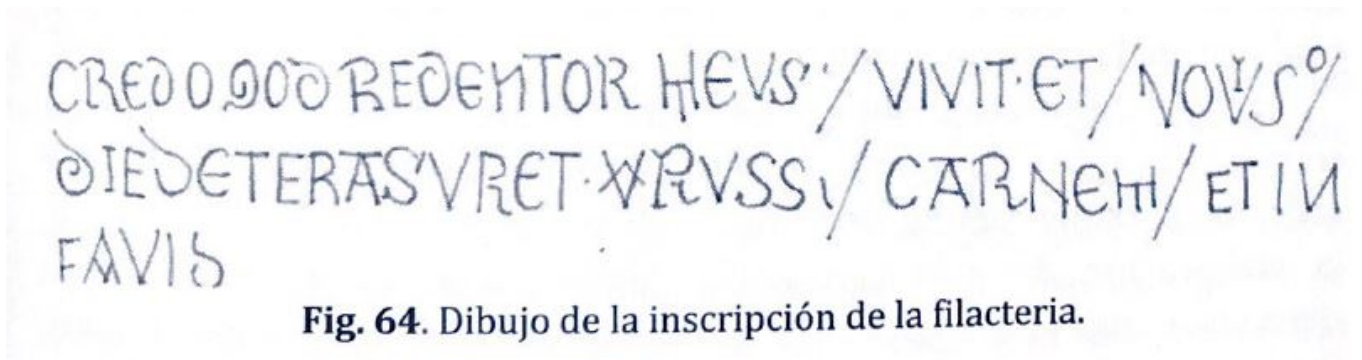 CREDO QOD REDENTOR HEUS / VIVIT · ET / NOVUS º/
DIE DETERASVRET · VRVSSI / CARNEM / ET IN
FAVIS
Fig. 64. Dibujo de la inscripción de la filacteria.